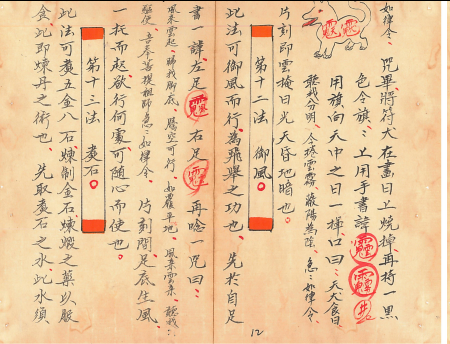 如律令、
咒畢將符犬在畫日上燒掉再持一黑
色令旗、上用手書諱
用旗向天中之日一揮口曰、天犬食日
聽我令明、令捲雲霧、蔽陽為陰、急急如律令、
片刻即雲掩日光天昏地暗也。
第十二法 御風。
此法可御風而行為飛舉之功也、先於自足
書一諱左足 右足 再唸一咒曰、
風來雲起、歸我腳底、騰空可行、如履平地、風來雲集、聽我
驅使、吾奉菩提祖師急急如律令、片刻間足底生風、
一托而起欲行何處、可隨心而使也。
第十三法 煮石。
此法可煮五金八石、煉制金石、煉蠍之藥以服
食此即煉丹之術也、先取煮石之水、此水須
12